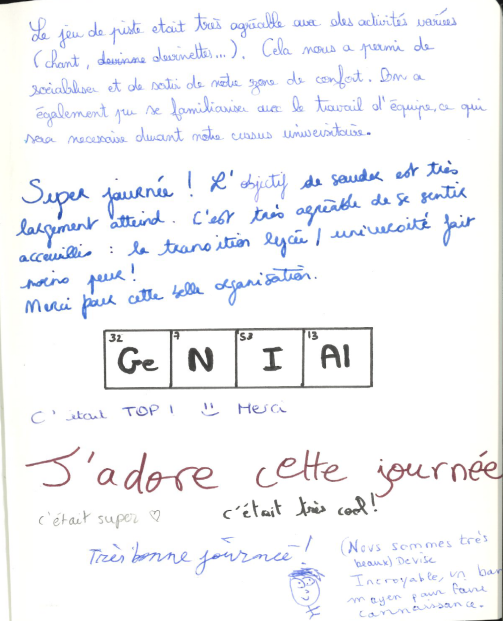 Le jeu de piste etait très agréable avec des activités variées
(chant, devinettes...). Cela nous a permi de
sociabiliser et de sortir de notre zone de confort. On a
également pu se familiariser avec le travail d'équipe, ce qui
sera necessaire durant notre cursus universitaire.
Super journée ! L'objectif de souder est très
largement atteind. C'est très agréable de se sentir
accueillis : la transition lycée / université fait
moins peur !
Merci pour cette belle organisation.
32 7 53 13
Ge N I Al
C'était TOP ! Merci
J'adore cette journée
c'était super ♡
c'était très cool !
Très bonne journée !
(Nous sommes très
beaux) Devise
Incroyable, un bon
moyen pour faire
connaissance.